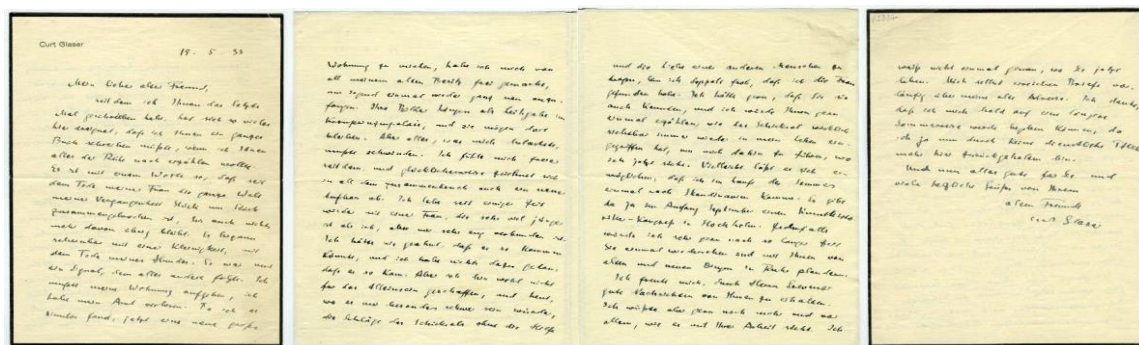 Curt Glaser
19. 5. 33
Mein lieber alter Freund,
seitdem ich Ihnen das letzte
Mal geschrieben habe, hat sich so vieles
hier ereignet, daß ich Ihnen ein ganzes
Buch schreiben müßte, wenn ich Ihnen
alles der Reihe nach erzählen wollte.
Es ist mit einem Worte so, daß seit
dem Tode meiner Frau die ganze Welt
meiner Vergangenheit Stück um Stück
zusammengebrochen ist, bis auch nichts
mehr davon übrig bleibt. Es begann
scheinbar mit einer Kleinigkeit, mit
dem Tode meines Hundes. Es war nur
ein Signal, dem alles andere folgte. Ich
mußte meine Wohnung aufgeben, ich
habe mein Amt verloren. Da ich es
sinnlos fand, jetzt eine neue große
Wohnung zu machen, habe ich mich von
all meinem alten Besitz frei gemacht,
um irgend einmal wieder ganz neu anzu-
fangen. Ihre Bilder hängen als Leihgabe im
Kronprinzenpalais, und sie mögen dort
bleiben. Aber alles, was mich belastete,
mußte schwinden. Ich fühle mich freier
seitdem, und glücklicherweise zeichnet sich
in all dem Zusammenbruch auch ein neuer
Aufbau ab. Ich lebe seit einiger Zeit
wieder mit einer Frau, die sehr viel jünger
ist als ich, aber mir sehr eng verbunden ist.
Ich hätte nie geahnt, daß es so kommen
könnte, und ich habe nichts dafür getan,
daß es so kam. Aber ich bin wohl nicht
für das Alleinsein geschaffen, und heut,
wo es mir besonders schwer sein würde,
die Schläge des Schicksals ohne die Hilfe
und die Liebe eines anderen Menschen zu
tragen, bin ich doppelt froh, daß ich die Frau
gefunden habe. Ich hätte gern, daß Sie sie
auch kennten, und ich würde Ihnen gern
einmal erzählen, wie das Schicksal wirklich
sichtbar immer wieder in mein Leben ein-
gegriffen hat, um mich dahin zu führen, wo
ich jetzt stehe. Vielleicht läßt es sich er-
möglichen, daß ich im Laufe des Sommers
einmal nach Skandinavien komme. Es gibt
da ja im Anfang September einen Kunsthisto-
riker-Kongreß in Stockholm. Jedenfalls
würde ich sehr gern nach so langer Zeit
Sie einmal wiedersehen und mit Ihnen von
alten und neuen Dingen in Ruhe plaudern.
Ich freute mich, durch
gute Nachrichten von Ihnen zu erhalten.
Ich wüßte aber gern noch mehr und vor
allem, wie es mit Ihrer Arbeit steht. Ich
weiß nicht einmal genau, wo Sie jetzt
leben. Mich selbst erreichen Briefe vor-
läufig über meine alte Adresse. Ich denke,
daß ich mich bald auf eine längere
Sommerreise werde begeben können, da
ich ja nun durch keine dienstliche Pflicht
mehr hier zurückgehalten bin.
Und nun alles gute für Sie und
viele herzliche Grüße von Ihrem
alten Freunde
Curt Glaser